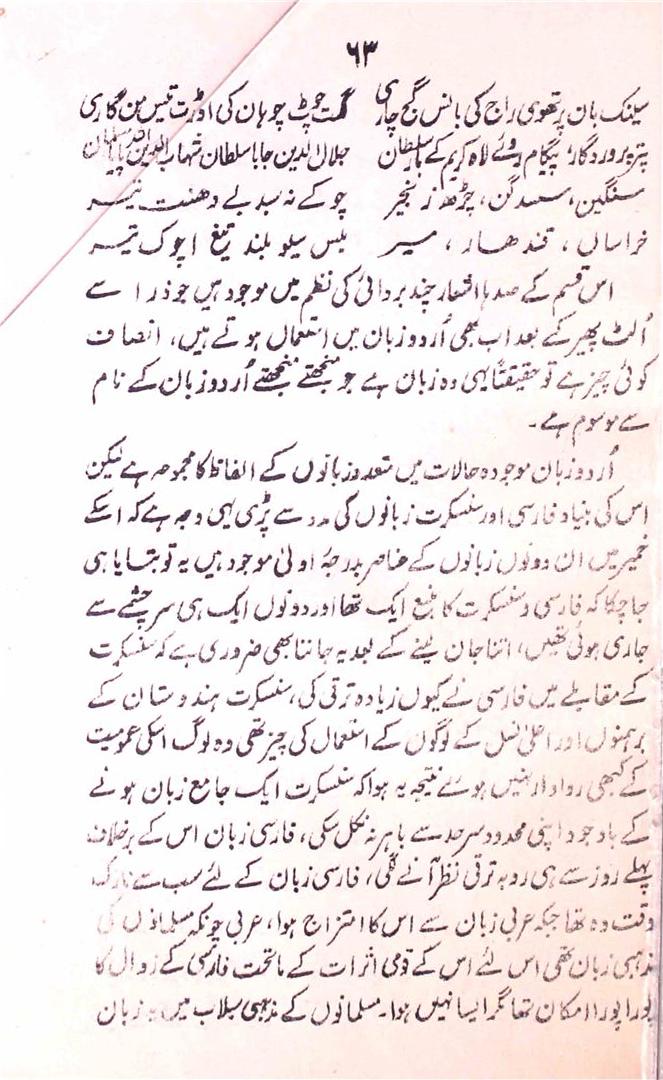 ۶۳
سینک بان پرتھوی راج کی بانس گج چاری گت چوپٹ چوہان کی اوڑت تیس من گاری
پروردگار پیگام الدین سلطان جلال الدین جابا سلطان شہاب الدین
سنگین، سسدگن، چڑھو زنجیر چوکے نہ سبد بے دھنت تیر
خراساں، قندھار، میر بس سیلو بلند تیغ اچوک تیر
اس قسم کے صدہا اشعار چند بردائی کی نظم میں موجود ہیں جو ذرا سے
اُلٹ پھیر کے بعد اب بھی اُردو زبان میں استعمال ہوتے ہیں، انصاف
کوئی چیز ہے تو حقیقتاً یہی وہ زبان ہے جو منجھتے منجھتے اُردو زبان کے نام
سے موسوم ہے۔
اُردو زبان موجودہ حالات میں متعدد زبانوں کے الفاظ کا مجموعہ ہے لیکن
اس کی بنیاد فارسی اور سنسکرت زبانوں کی مدد سے پڑی یہی وجہ ہے کہ اسکے
خمیر میں ان دونوں زبانوں کے عناصر بدرجۂ اولیٰ موجود ہیں یہ تو بتایا ہی
جا چکا کہ فارسی و سنسکرت کا منبع ایک تھا اور دونوں ایک ہی سرچشمے سے
جاری ہوئی تھیں، اتنا جان لینے کے بعد یہ جاننا بھی ضروری ہے کہ سنسکرت
کے مقابلے میں فارسی نے کیوں زیادہ ترقی کی، سنسکرت ہندوستان کے
برہمنوں اور اعلیٰ نسل کے لوگوں کے استعمال کی چیز تھی وہ لوگ اسکی عمومیت
کے کبھی روادار نہیں ہوے نتیجہ یہ ہوا کہ سنسکرت ایک جامع زبان ہونے
کے باوجود اپنی محدود سرحد سے باہر نہ نکل سکی، فارسی زبان اس کے برخلاف
پہلے روز سے ہی روبہ ترقی نظر آنے لگی، فارسی زبان کے لئے سب سے نازک
وقت وہ تھا جبکہ عربی زبان سے اس کا امتزاج ہوا، عربی چونکہ مسلمانوں کی
مذہبی زبان تھی اس لئے اس کے قومی اثرات کے ماتحت فارسی کے زوال کا
پورا پورا امکان تھا مگر ایسا نہیں ہوا۔ مسلمانوں کے مذہبی سیلاب میں یہ زبان